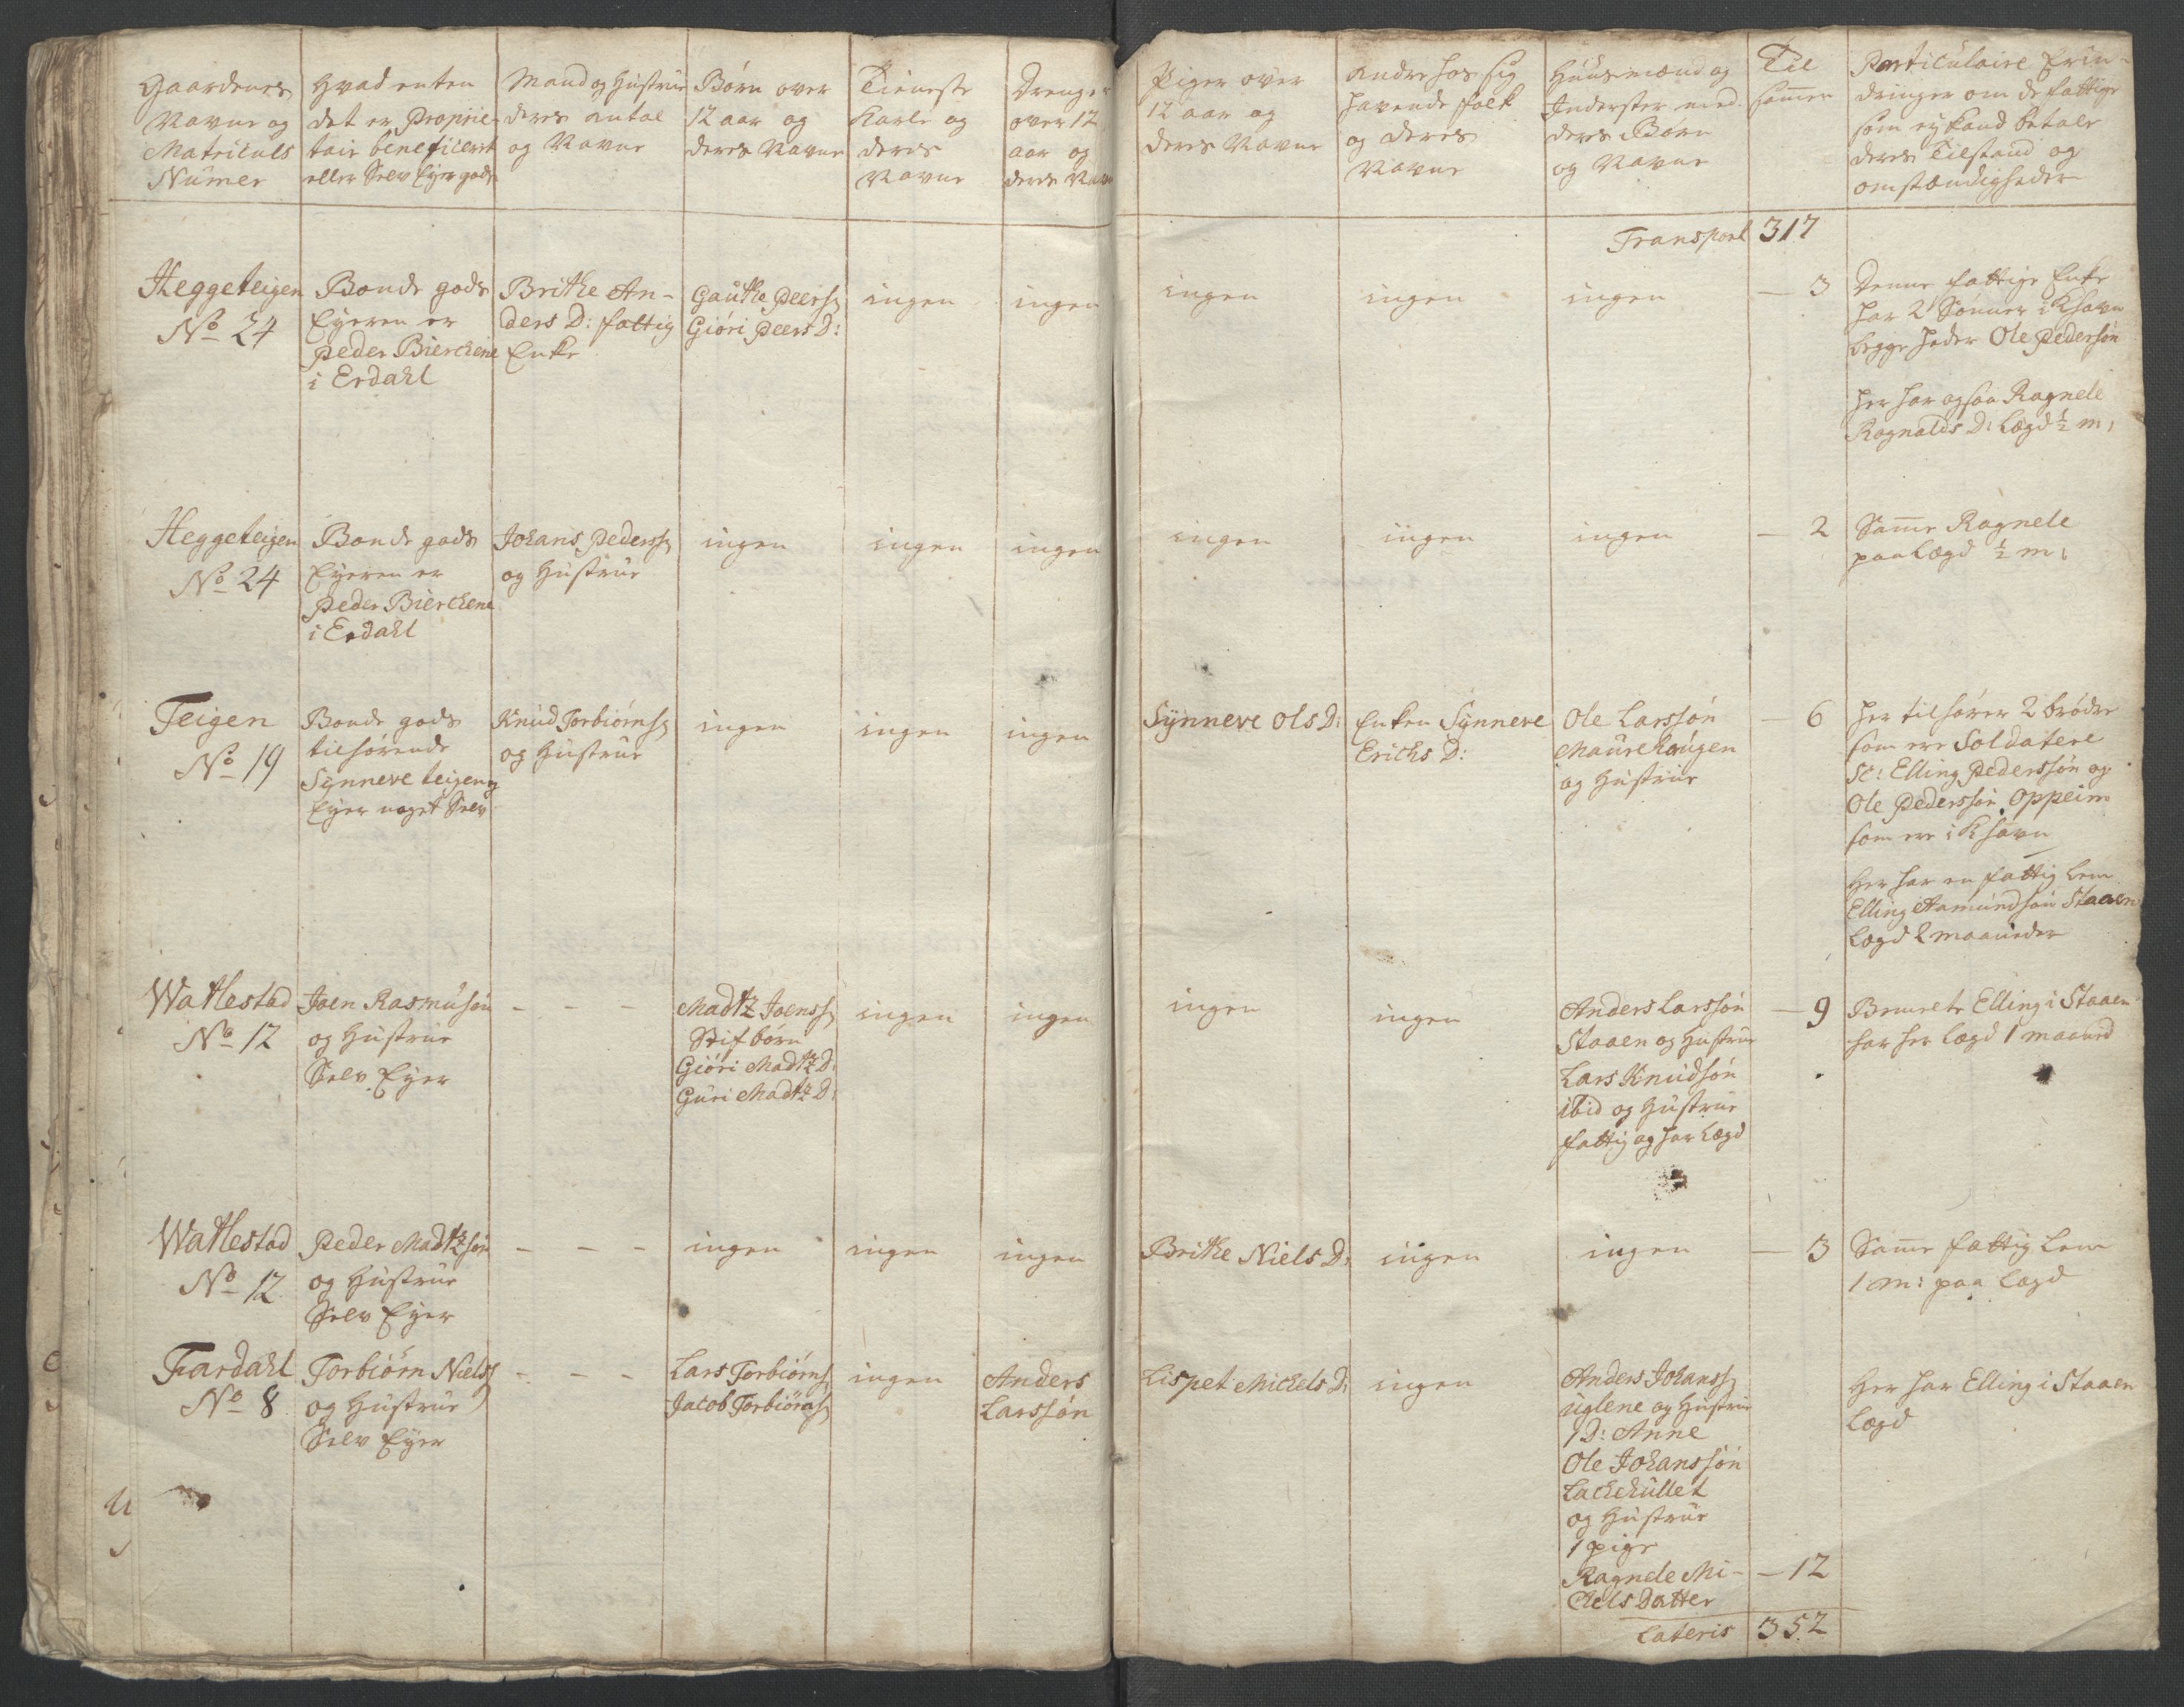 Gaardenes
Navne og
Matriculs
Numer
Hvad enten
det er Proprie-
tair beneficeret
eller Selv Eyer gods
Mand og Hustrue
deres Antal
og Navne
Børn over
12 aar og
deres Navne
Tieneste
Karle og
deres
Navne
Drenge
over 12
aar og
deres Navne
Piger over
12 aar og
deres Navne
Andre hos sig
havende folk
og deres
Navne
Huusmænd og
Inderster med
deres Børn
og Navne
Til
sam̅en
Particulaire Erin-
dringer om de fattige
som ey kand betale
deres Tilstand og
omstændigheder
Transport 317
Heggeteigen
No 24
Bonde gods
Eyeren er
Peder Bierchene
i Erdahl
Brithe An-
ders D: fattig
Enke
Gauthe Peers
Giøri Peers D:
ingen
ingen
ingen
ingen
ingen
— 3
Denne fattige Enke
har 2 Sønner i Khavn
begge heder Ole Pedersøn
her har ogsaa Ragnele
Ragnalds D: Lægd ½ m:
Heggeteigen
No 24
Bonde gods
Eyeren er
Peder Bierchene
i Erdahl
Johans Peders
og Hustrue
ingen
ingen
ingen
ingen
ingen
ingen
— 2
Sam̅e Ragnele
paa Lægd ½ m:
Teigen
No 19
Bonde gods
tilhørende
Synneve teigen og
Eyer noget Selv
Knud Torbiørns
og Hustrue
ingen
ingen
ingen
Synneve Ols D:
Enken Synneve
Erichs D:
Ole Larssøn
Maurehougen
og Hustrue
— 6
her tilhører 2 brødre
som ere Soldatere
Sc: Elling Pederssøn og
Ole Pederssøn Oppeim
som ere i Khavn
Her har en fattig Lem
Elling Aamundsøn Staaen
Lægd 2 maaneder
Watlestad
No 12
Joen Rasmusøn
og Hustrue
Selv Eyer
- - -
Madtz Joens
Stifbørn
Giøri Madtz D:
Guri Madtz D:
ingen
ingen
ingen
ingen
Anders Larssøn
Staaen og Hustrue
Lars Knudsøn
ibid og Hustrue
fattig og har Lægd
— 9
Elling i Staaen
har her Lægd 1 maaned
Watlestad
No 12
Peder Madtzsøn
og Hustrue
Selv Eyer
- - -
ingen
ingen
ingen
Brithe Niels D:
ingen
ingen
— 3
Sam̅e fattig Lem
1 m: paa Lægd
Fardahl
No 8
Torbiørn Niels
og Hustrue
Selv Eyer
- - -
Lars Torbiørns
Jacob Torbiørns
ingen
Anders
Larssøn
Lispet Michels D:
ingen
Anders Johans
Uglene og Hustrue
1 D: Anne
Ole Johanssøn
Lachehullet
og Hustrue
1 pige
Ragnele Mi-
chels Datter
— 12
Her har Elling i Staaen
Lægd
Lateris 352